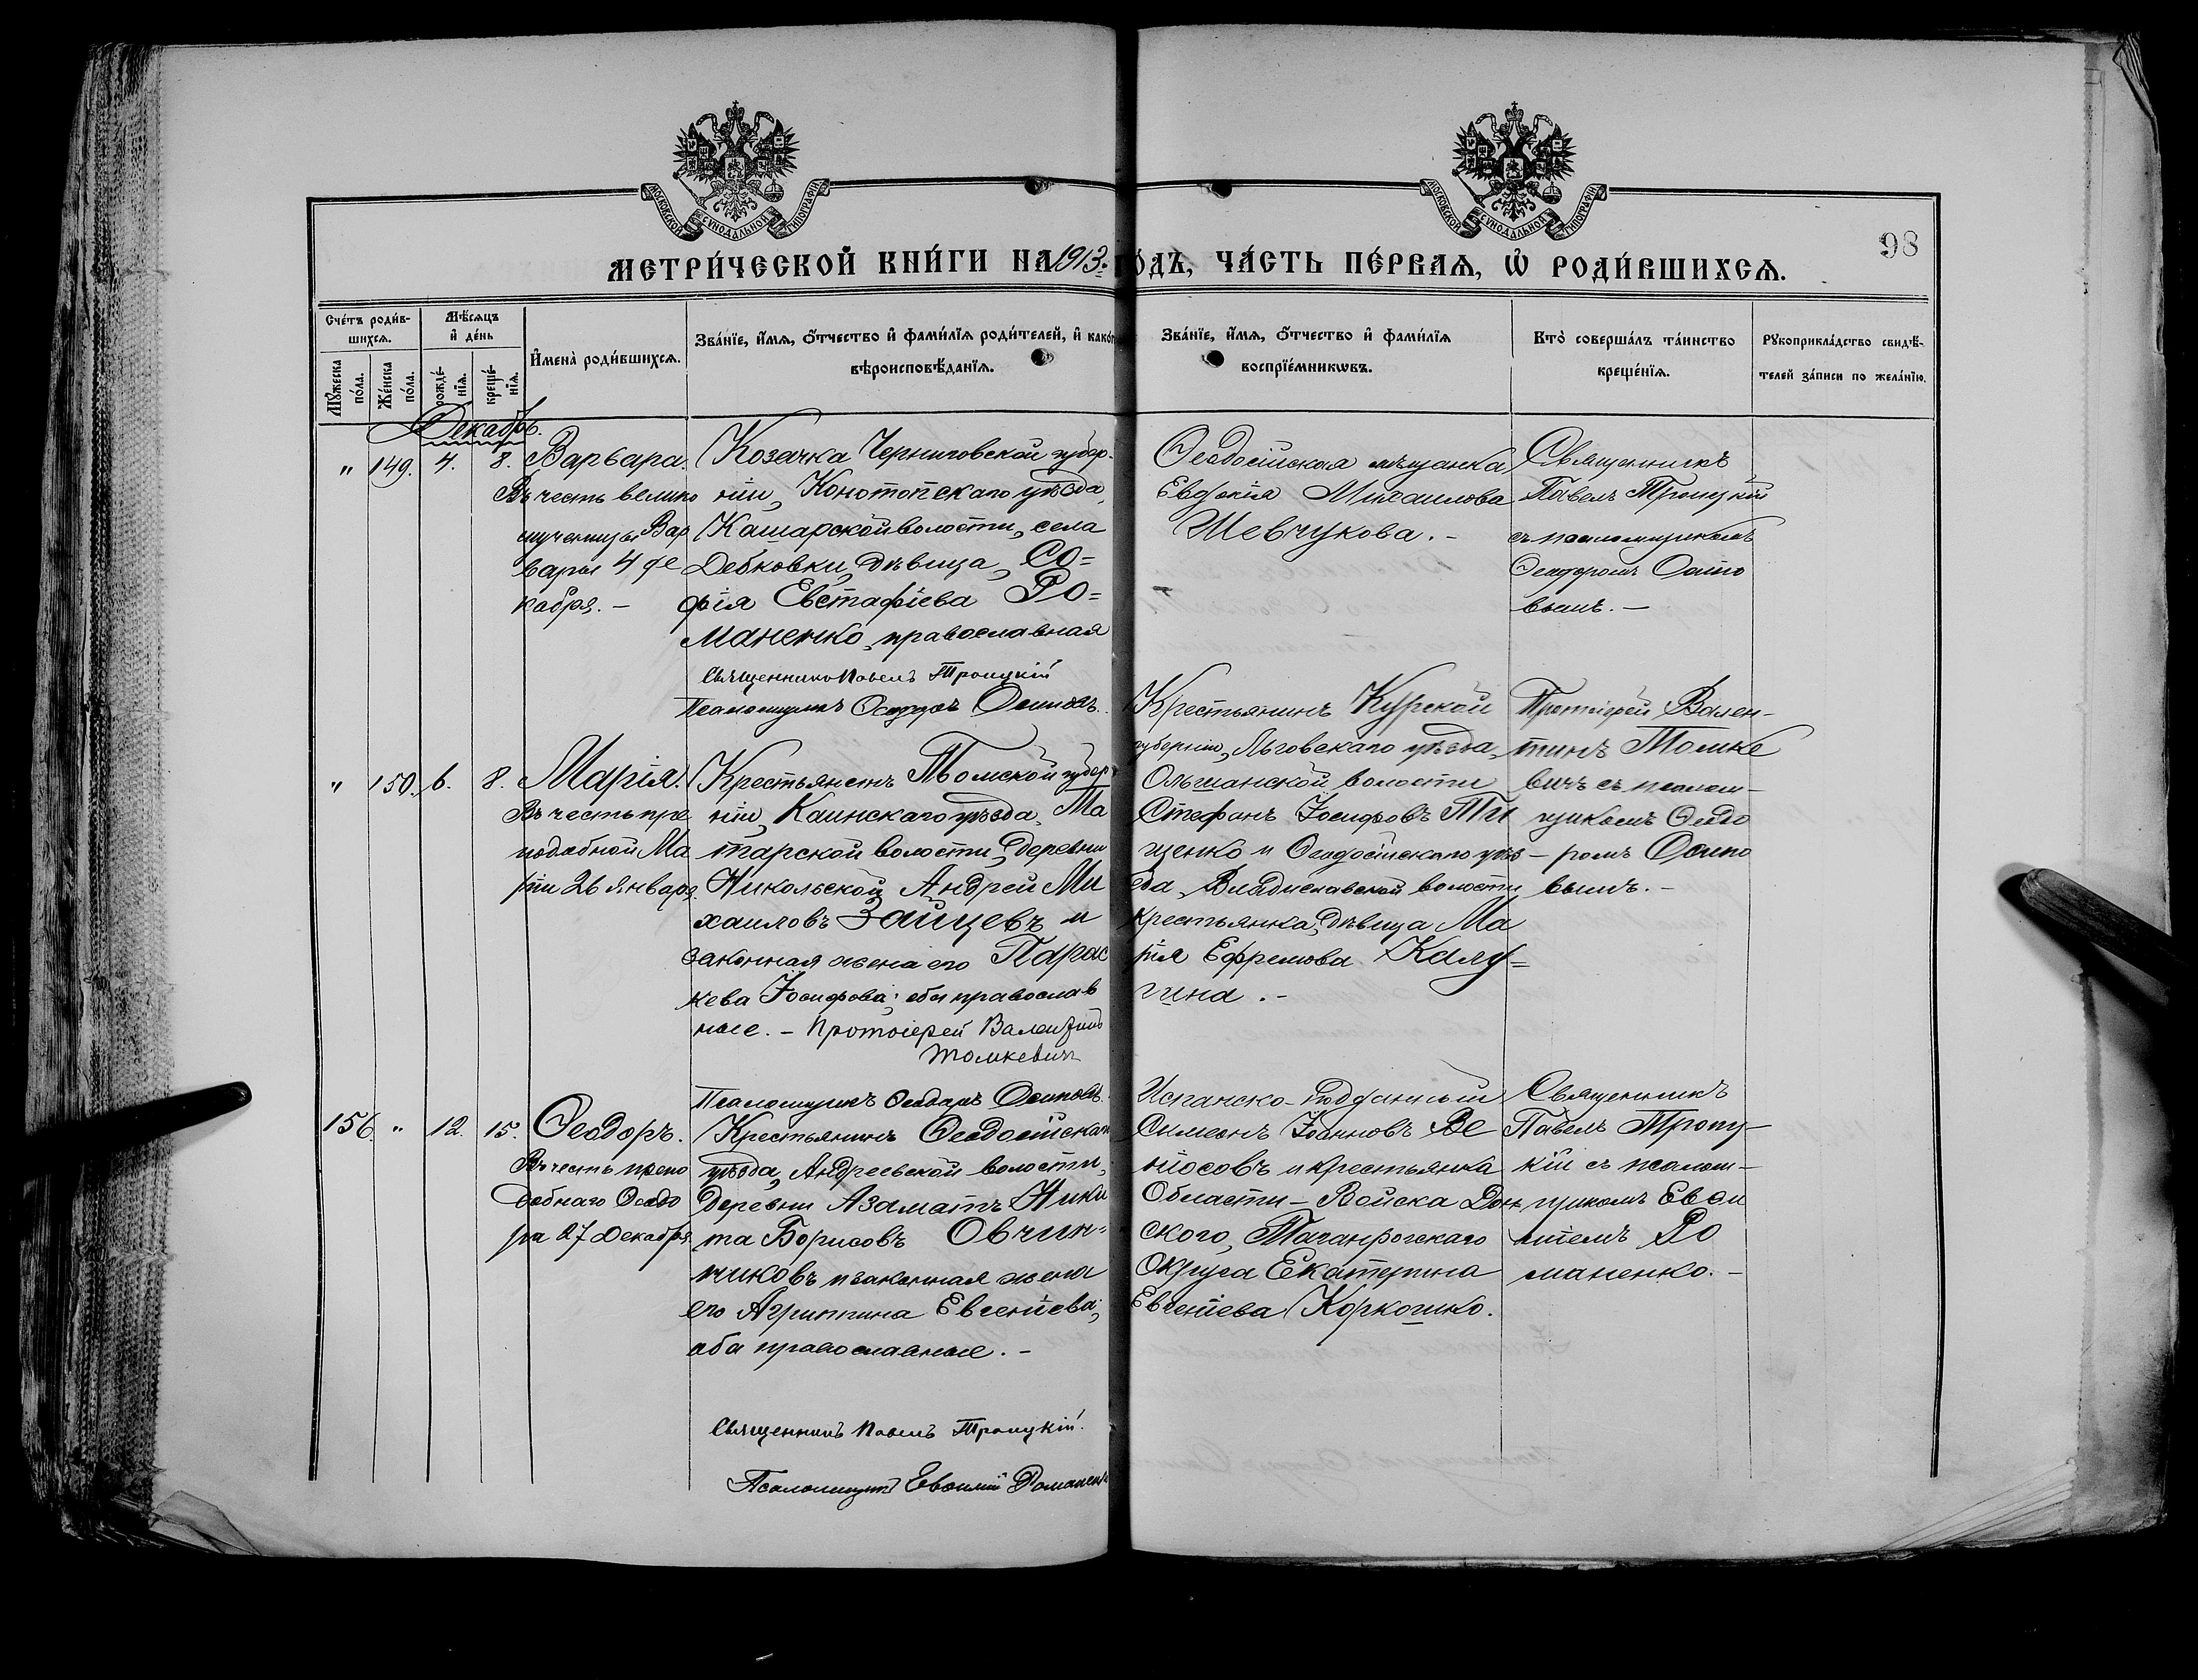 МОСКОВСКОЙ СѴНОДАЛЬНОЙ ТИПОГРАФІИ
МОСКОВСКОЙ СѴНОДАЛЬНОЙ ТИПОГРАФІИ
98
МЕТРИ́ЧЕСКОЙ КНИ́ГИ НА 1913 ГО́ДЪ, ЧА́СТЬ ПЕ́РВАѦ, Ѡ҆ РОДИ́ВШИХСѦ.
Сче́тъ роди́в-
шихсѧ.
Мꙋ́жеска по́ла.
Же́нска по́ла.
Мѣ́сѧцъ
и҆ де́нь
рожде́-нїѧ.
креще́-нїѧ.
И҆мена̀ роди́вшихсѧ.
Зва́нїе, и҆́мѧ, ѻ҆́тчество и҆ фами́лїѧ роди́телей, и҆ како́г
вѣроисповѣ́данїѧ.
Зва́нїе, и҆́мѧ, ѻ҆́тчество и҆ фами́лїѧ
воспрїе́мникѡвъ.
Кто̀ соверша́лъ та́инство
креще́нїѧ.
Рꙋкоприкла́дство свидѣ́-
телей за́писи по жела́нїю.
Декабрь.
" 149. 4. 8.
Варвара.
Въ честь велико
мученицы Вар
вары 4 де
кабря. –
Козачка Черниговской губер-
ніи, Конотопскаго уѣзда,
Кашарской волости, села
Дебковки, дѣвица, Со=
фія Евстафіева Ро=
маненко, православная
Священникъ Павелъ Троицкій
Псаломщикъ Ѳеодоръ Осиповъ.
Ѳеодосійская мѣщанка
Евдокія Михаилова
Шевчукова. –
Священникъ
Павелъ Троицкій
съ псаломщикомъ
Ѳеодоромъ Осипо
вымъ. –
" 150. 6. 8.
Марія.
Въ честь пре
подобной Ма
ріи 26 Января.
Крестьянинъ Томской губер
ніи, Каинскаго уѣзда, Ма
тарской волости, деревни
Никольской Андрей Ми
хаиловъ Зайцевъ и
законная жена его Парас
кева Іосифова; оба православ
ные. – Протоіерей Валентинъ
Томкевичъ
Псаломщикъ Ѳеодоръ Осиповъ.
Крестьянинъ Курской
губерніи, Льговскаго уѣзда,
Ольшанской волости
Стефанъ Іосифовъ Ти
щенко и Ѳеодосійскаго уѣз–
да, Владиславской волости
крестьянка, дѣвица Ма
рія Ефремова Калу=
гина. –
Протоіерей Вален–
тинъ Томке
вичъ съ псалом–
щикомъ Ѳеодо
ромъ Осипо
вымъ. –
156 " 12. 15.
Ѳеодоръ.
Въ честь препо
добнаго Ѳеодо
ра 27 Декабря
Крестьянинъ Ѳеодосійскаго
уѣзда, Андреевской волости,
деревни Азаматъ Ники
та Борисовъ Овчин=
никовъ и законная жена
его Агриппина Евгеніева;
оба православные. –
Священникъ Павелъ Троицкій.
Псаломщикъ Евѳимій Романенко
Испанско-подданный
Симеонъ Іоанновъ Ве
ніосовъ и крестьянка
Области – Войска Дон
ского, Таганрогскаго
Округа Екатерина
Евгеніева Коркошко.
Священникъ
Павелъ Троиц–
кій съ псалом–
щикомъ Евѳи
міемъ Ро
маненко. –